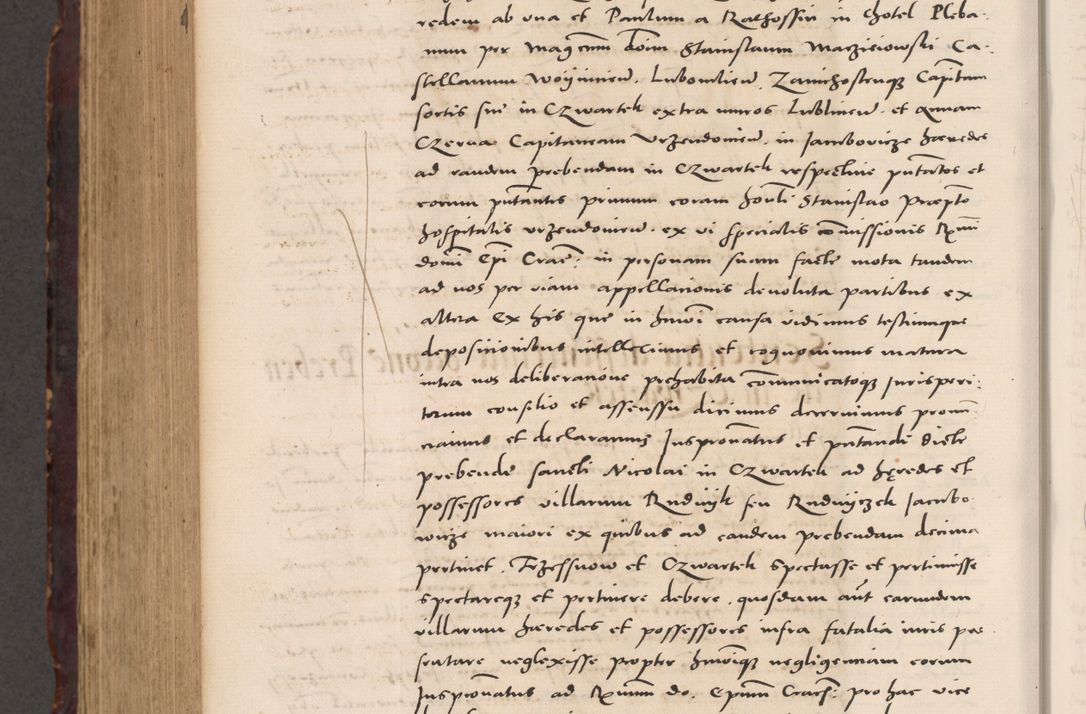 redem ab vna et Paulum a Rathossin in Chotel Pleba-
num per Magcum dnm Stanislaum Maczieiowski Ca-
stellanum Woynicien. Lubomlien. Zawichostenque Capitan
sortis sue in Czwartek extra muros Lublinen. et annam
Czerna Capitaneam Vrzendovien. in Jacubovicze haeredes
ad eandem prebendam in Czwartek respective pntatos et
eorum pntantes primum coram honli Stanislao Praepto
hospitalis vrzendovien. ex vi specialis comissionis Rxmi
domi Epi Crac: in personam suam facte mota tandem
ad nos per viam appellacionis devoluta partibus ex
altera Ex his que in hmoi causa vidimus testiumque
deposicionibus intelleximus et cognovimus matura
intra nos deliberacione prehabita comunicatoque Jurisperi-
torum consilio et assenssu dicimus decernimus pronu-
ciamus et declaramus Juspronatus et pntandi dicte
prebende sancti Nicolai in Czwartek ad heredes et
possessores villarum Rudnyk seu Rudnyczek Jacubo-
wicze maiori ex quibus ad eandem prebendam decima
pertinet. Trzessnow et Czwartek spectasse et pertinuisse
spectareque et pertinere debere. quosdam aut earundem
villarum haeredes et possessores infra fatalia iuris prae
sentare neglexisse propter hmoique negligenciam eorum
Juspronatus ad Rxmum do. Epum Cracs: pro hac vice